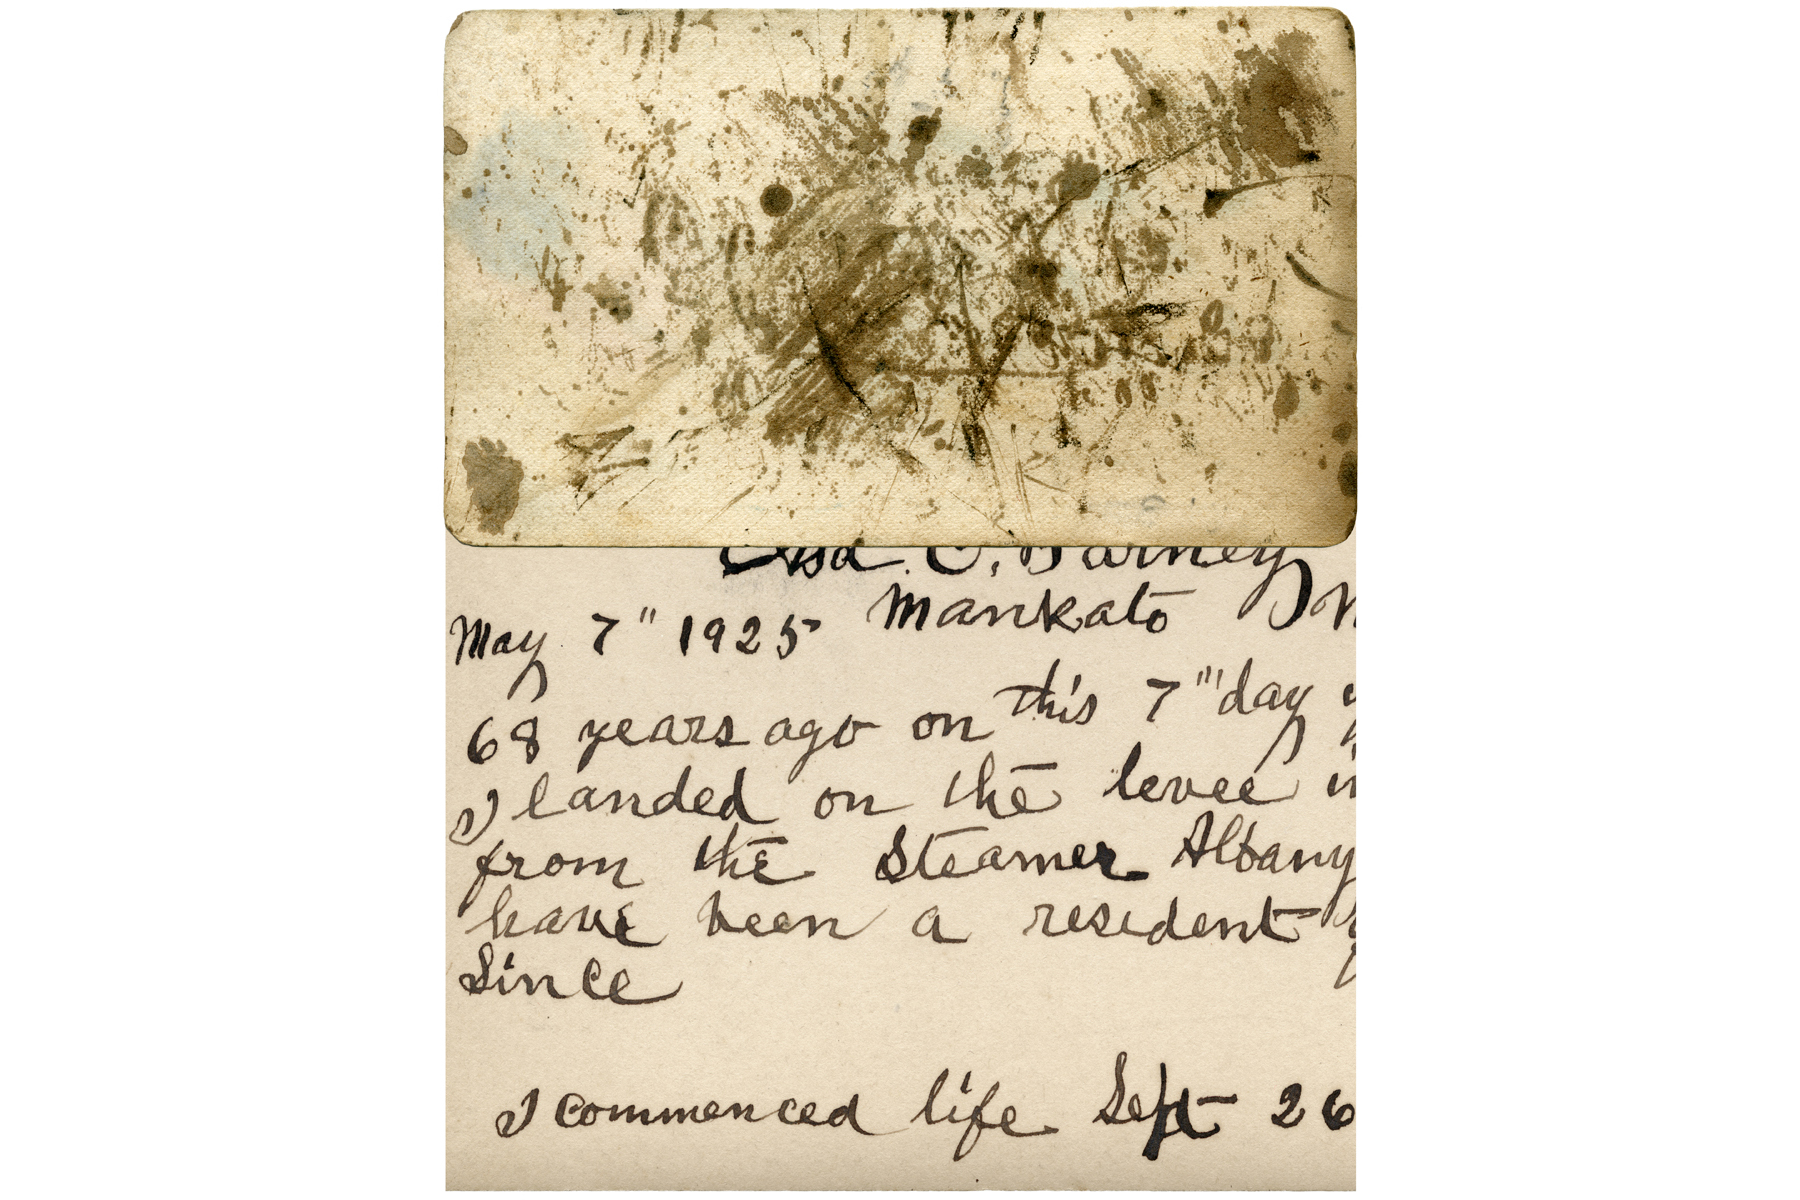 Asa C. Barney
Mankato
May 7" 1925
68 years ago on this 7"' day
I landed on the levee in
from the Steamer Albany
have been a resident
Since
I commenced life Sept 26